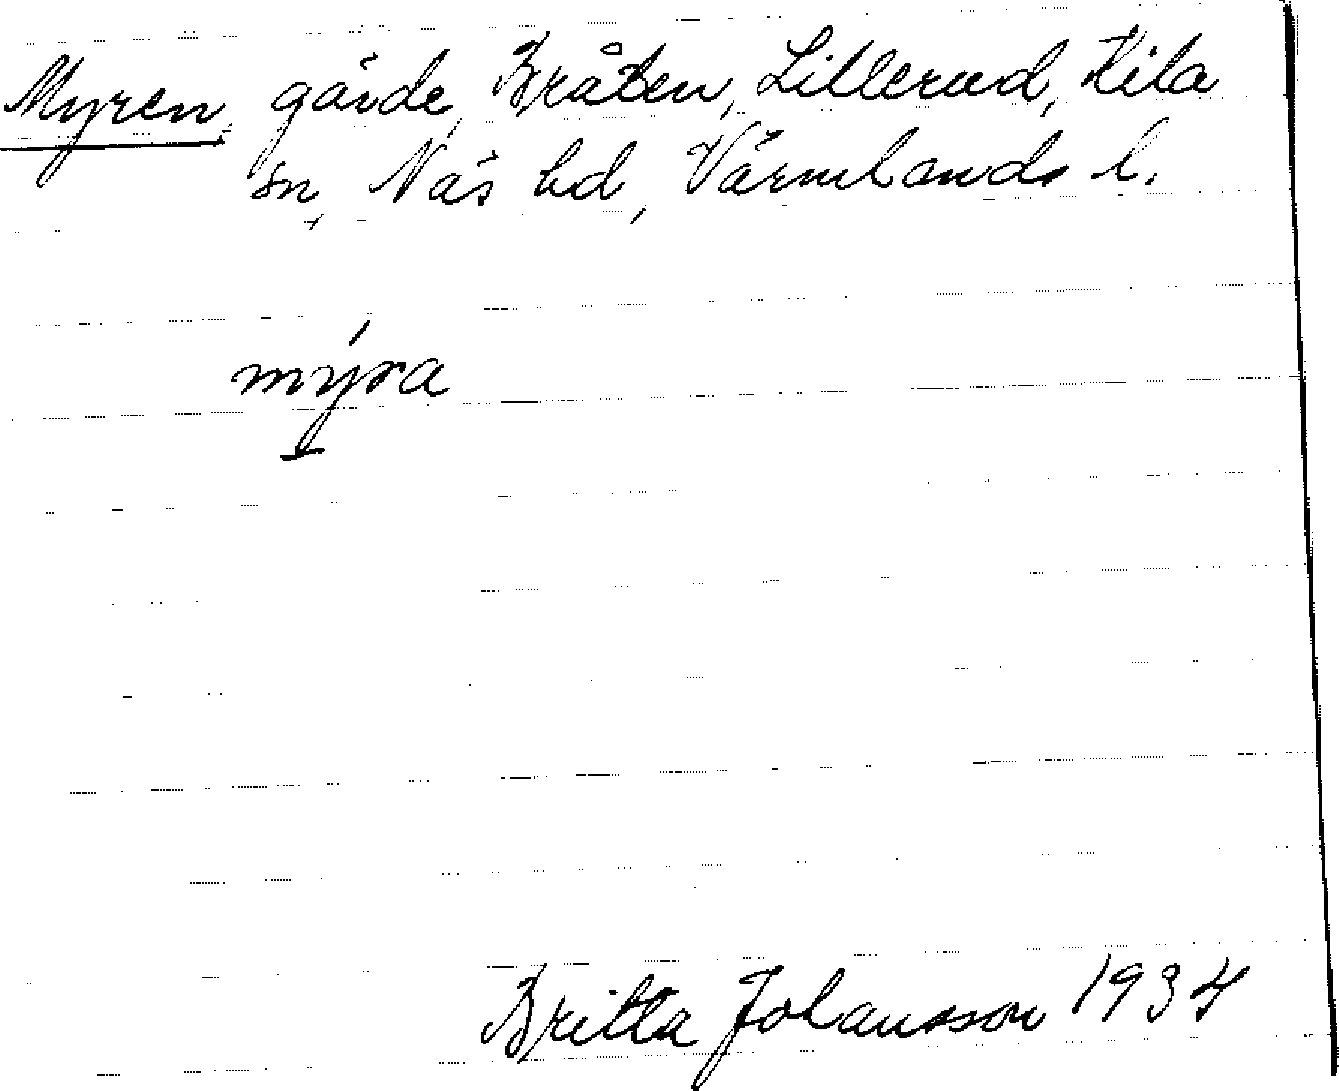 Myren, gärde, Bråten, Lillerud, Kila
sn, Näs hd, Värmlands l.
mýra
Britta Johansson 1934